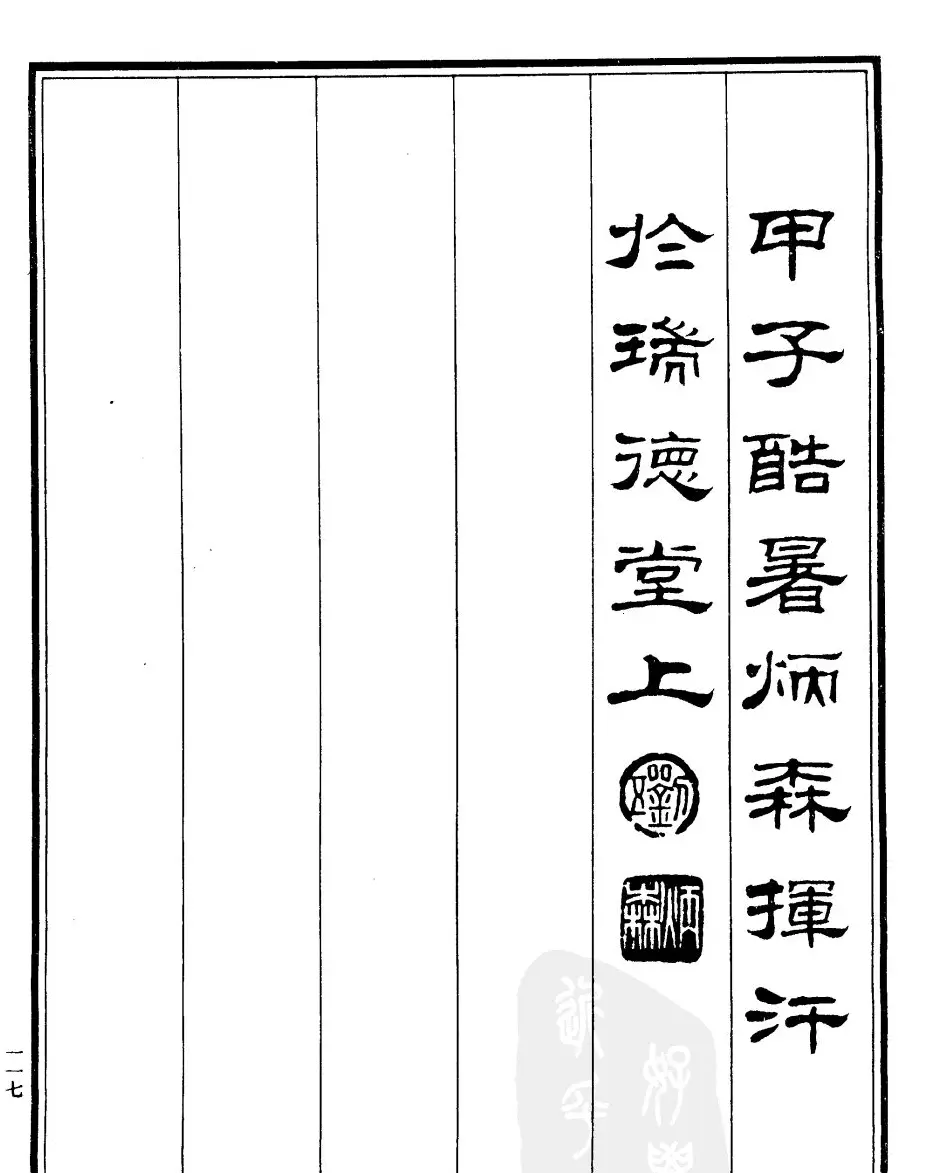 甲子酷暑炳森揮汗
於瑞德堂上
劉
炳森
二一七